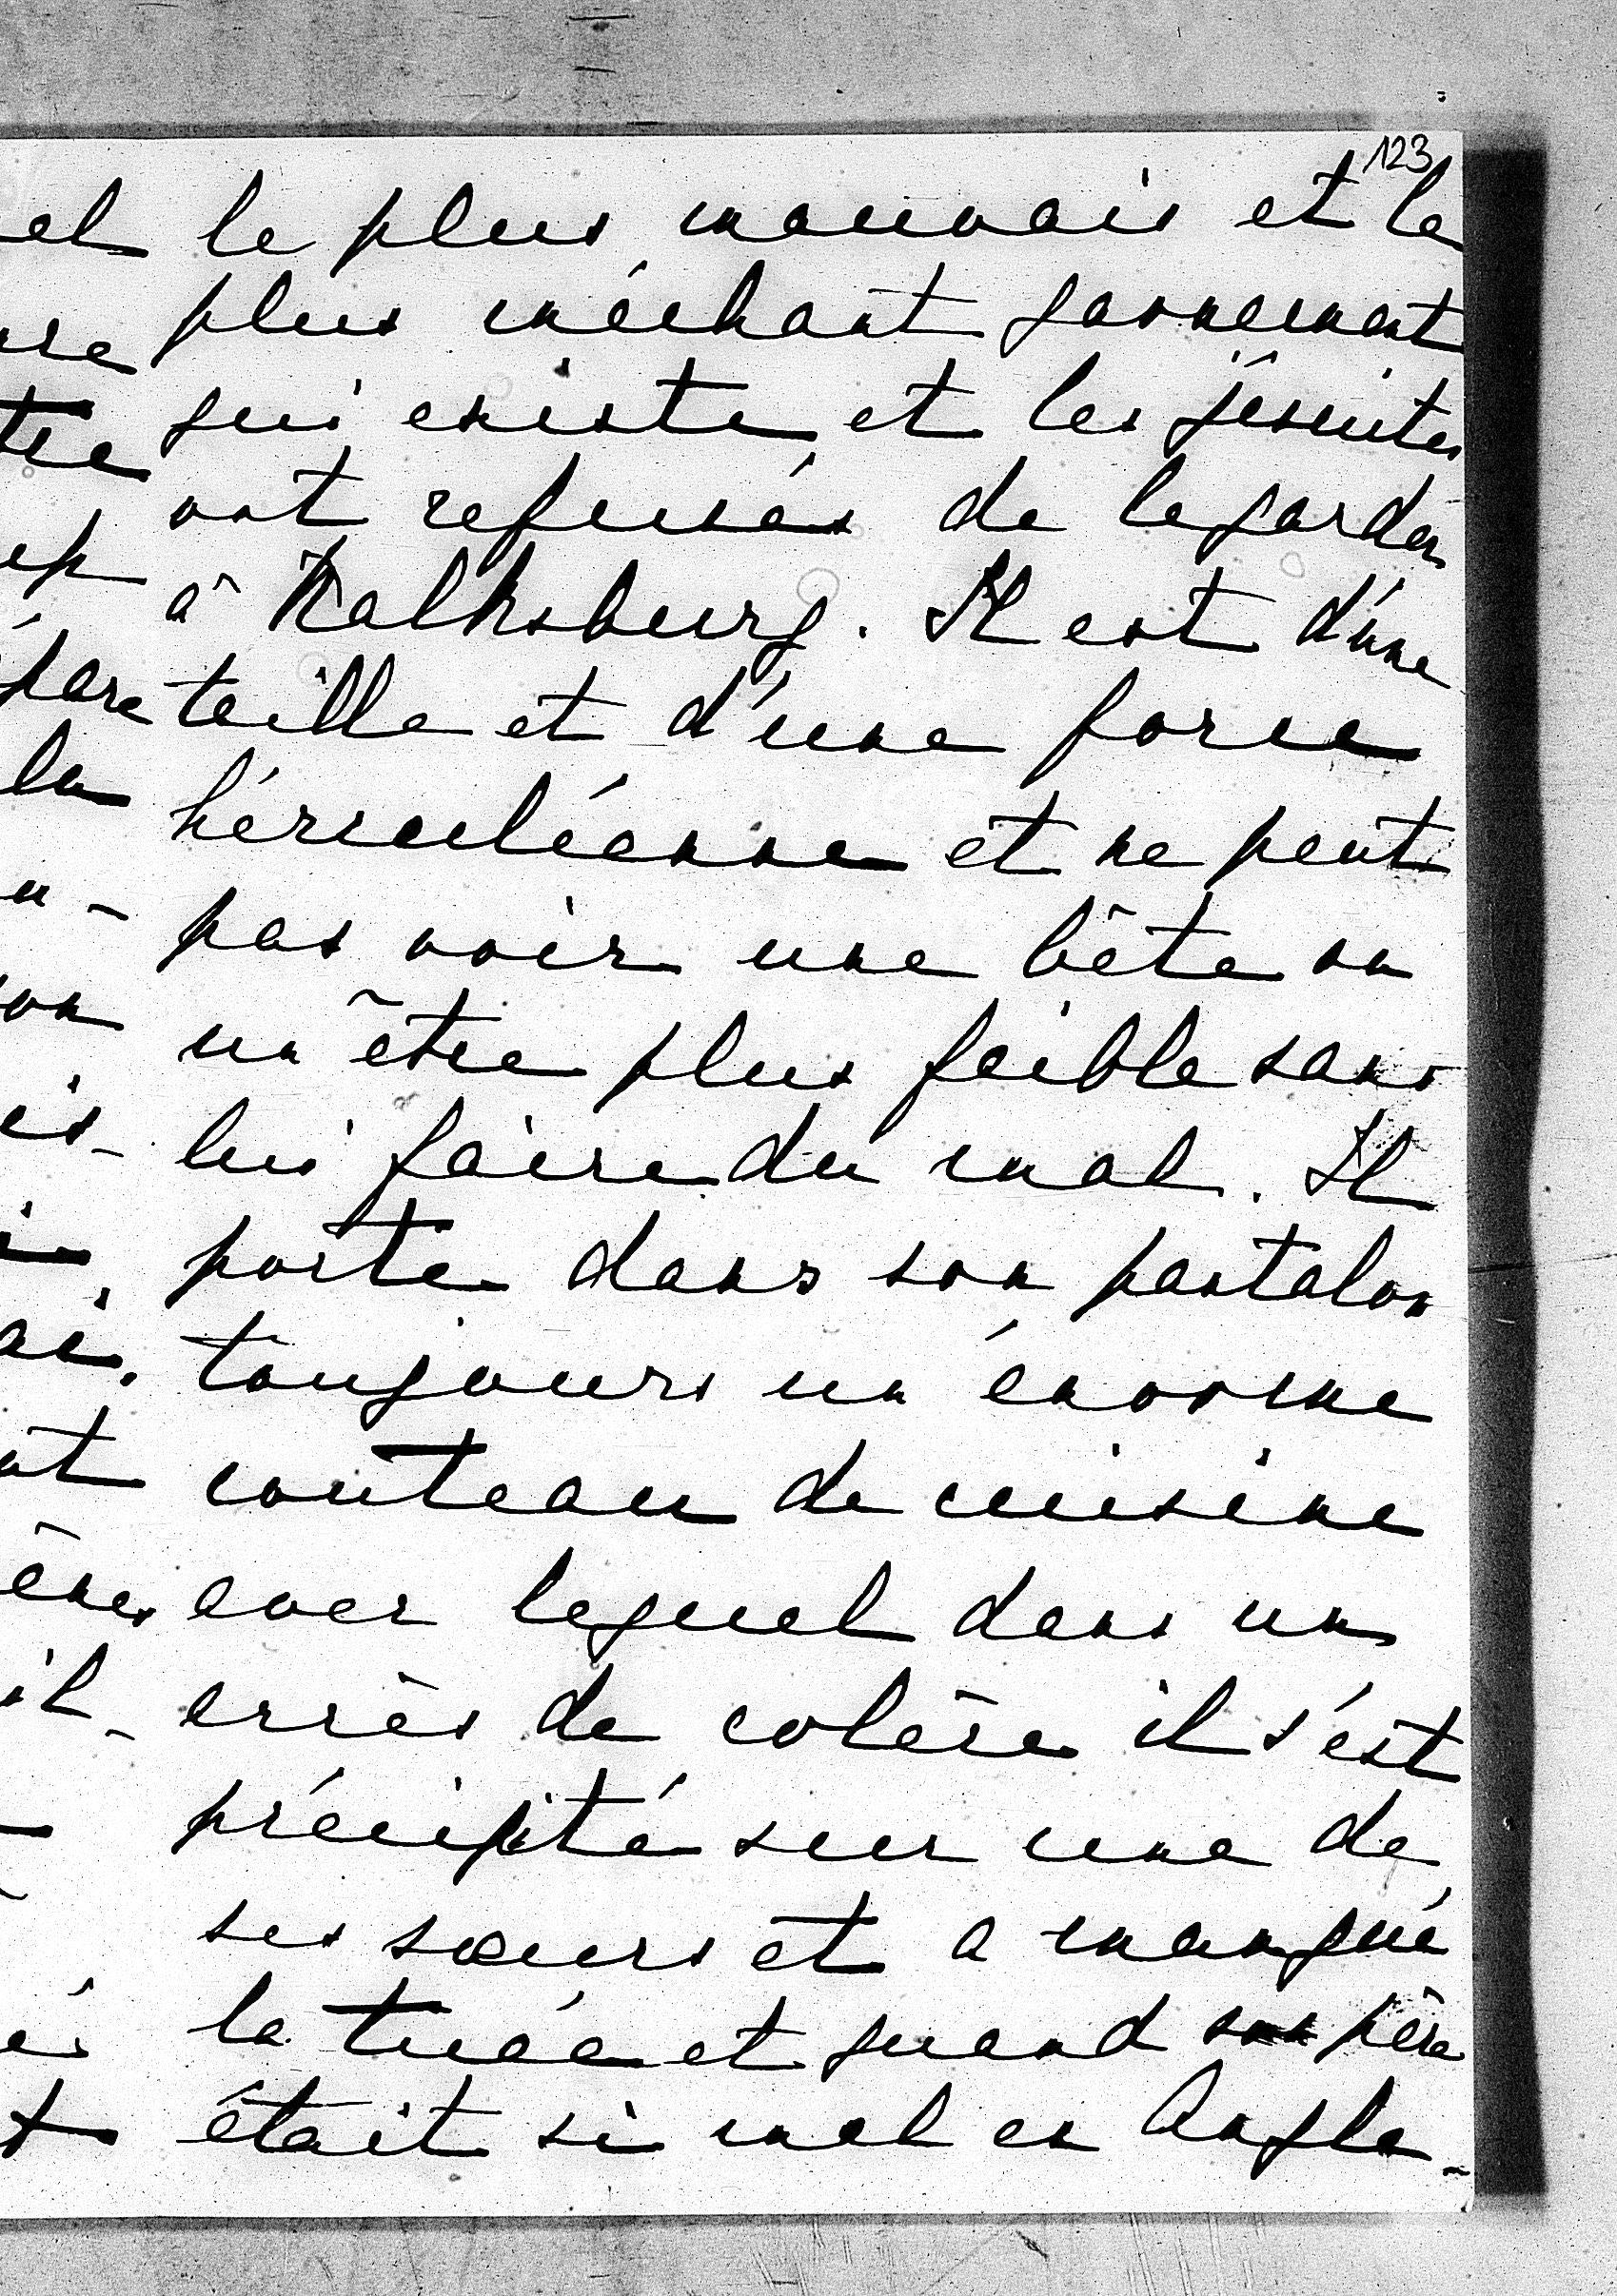 123
le plus mauvais et le
plus méchant garnement
qui existe, et les jésuites
ont refusés de le garder
à Kalksburg. Il est d'une
taille et d'une force
hérculéenne et ne peut
pas voir une bête ou
un être plus faible sans
lui faire du mal. Il
porte dans son pantalon
toujours un énorme
couteau de cuisine
avec lequel dans un
accès de colère il s'est
précipité sur une de
ses sœurs et a manqué
la tuée et quand son père
était si mal en Angle-